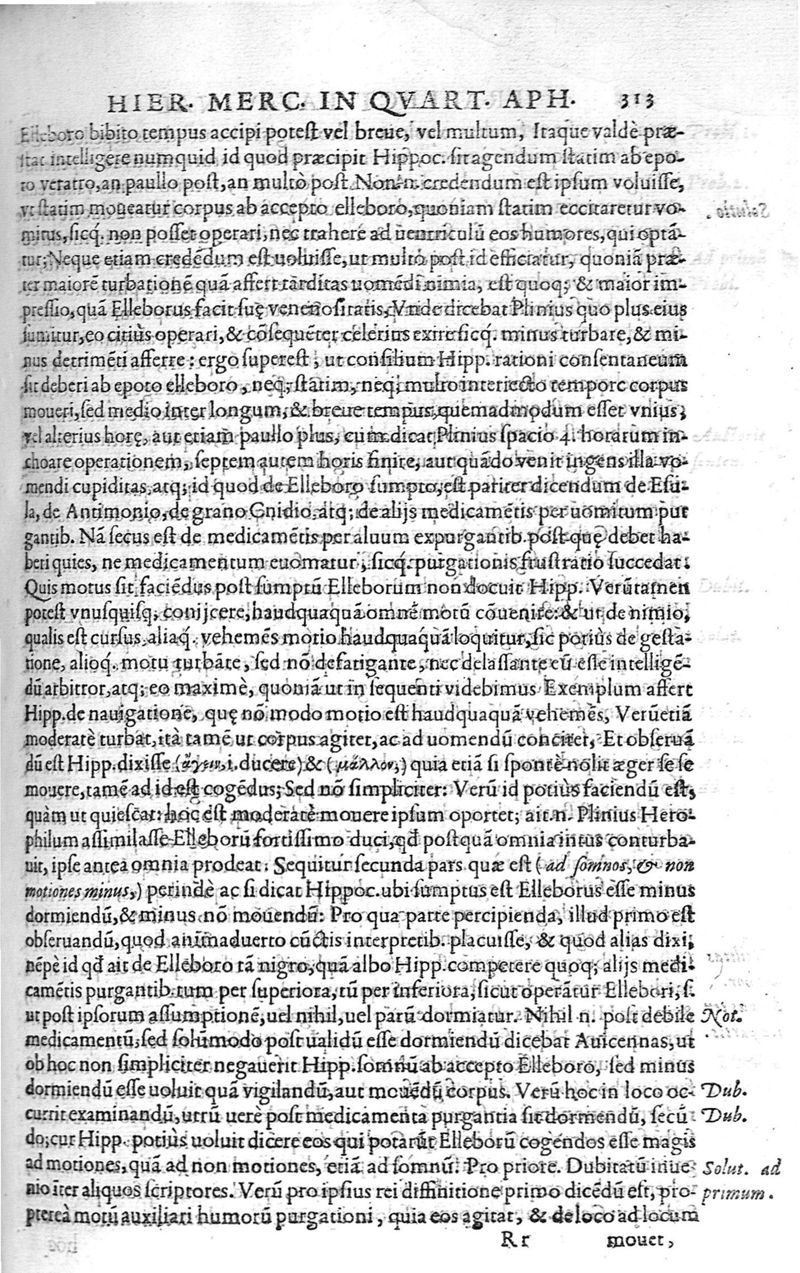 HIER. MERC. IN QVART. APH. 313
Elleboro bibito tempus accipi potest vel breue, vel multum, Itaque valdè præ-
stat intelligere numquid id quod præcipit Hippoc. sit agendum statim ab epo-
to veratro, an paullo post, an multò post. Non.n. credendum est ipsum voluisse,
vt statim moueatur corpus ab accepto elleboro, quoniam statim excitaretur vo-
mitus, sicq. non posset operari, nec trahere ad uentriculū eos humores, qui optā-
tur; Neque etiam credēdum est uoluisse, ut multò post id efficiatur, quoniā præ-
ter maiorē turbationē quā affert tarditas uomēdi nimia, est quoq; & maior im-
pressio, quā Elleborus facit suę venenositatis, Vnde dicebat Plinius quo plus eius
sumitur, eo citiùs operari, & cōsequēter celerius exire sicq. minus turbare, & mi-
nus detrimēti afferre: ergo superest, ut consilium Hipp. rationi consentaneum
sit deberi ab epoto elleboro, neq; statim, neq; multo interiecto tempore corpus
moueri, sed medio inter longum, & breue tempus, quemadmodum esset vnius,
vel alterius horę, aut etiam paullo plus, cum dicat Plinius spacio 4. horarum in-
choare operationem, septem autem horis finire, aut quādo venit ingens illa vo-
mendi cupiditas, atq; id quod de Elleboro sumpto, est pariter dicendum de Esu-
la, de Antimonio, de grano Gnidio, atq; de alijs medicamētis per uomitum pur
gantib. Nā secus est de medicamētis per aluum expurgantib. post quę debet ha-
beri quies, ne medicamentum euomatur, sicq. purgationis frustratio succedat.
Quis motus sit faciēdus post sumptū Elleborum non docuit Hipp. Verūtamen
potest vnusquisq. conijcere, haudquaquā omnē motū cōuenire: & ut de nimio,
qualis est cursus aliaq. vehemēs motio haudquaquā loquitur, sic potius de gesta-
tione, alioq. motu turbāte, sed nō defatigante, nec delassante eū esse intelligē-
dū arbitror, atq; eo maximè, quoniā ut in sequenti videbimus Exemplum affert
Hipp. de nauigatione, quę nō modo motio est haudquaquā vehemēs, Verūetiā
moderatè turbat, ità tamē ut corpus agitet, ac ad uomendū concitet, Et obseruā
dū est Hipp. dixisse (ἄγειν, i. ducere) & (μᾶλλον,) quia etiā si spontè nolit æger se se
mouere, tamē ad id est cogēdus; Sed nō simpliciter: Verū id potius faciendū est,
quàm ut quiescat: hoc est moderatè mouere ipsum oportet; ait.n. Plinius Hero-
philum assimilasse Elleborū fortissimo duci, qđ postquā omnia intus conturba-
uit, ipse anteà omnia prodeat. Sequitur secunda pars quæ est (ad somnos, & non
motiones minus,) perinde ac si dicat Hippoc. ubi sumptus est Elleborus esse minus
dormiendū, & minus nō mouendū: Pro qua parte percipienda, illud primo est
obseruandū, quod animaduerto cūctis interpretib. placuisse, & quod alias dixi,
nēpè id qđ ait de Elleboro tā nigro, quā albo Hipp. competere quoq; alijs medi-
camētis purgantib. tum per superiora, tū per inferiora, sicut operātur Ellebori, s.
ut post ipsorum assumptionē, uel nihil, uel parū dormiatur. Nihil n. post debile Not.
medicamentū, sed solūmodo post ualidū esse dormiendū dicebat Auicennas, ut
ob hoc non simpliciter negauerit Hipp. somnū ab accepto Elleboro, sed minus
dormiendū esse uoluit quā vigilandū, aut mouēdū corpus. Verū hoc in loco oc- Dub.
currit examinandū, utrū uerè post medicamenta purgantia sit dormendū, secū Dub.
do; cur Hipp. potiùs uoluit dicere eos qui potarūt Elleborū cogendos esse magis
ad motiones, quā ad non motiones, etiā ad somnū. Pro priore. Dubitatū inue- Solut. ad
nio iter aliquos scriptores. Verū pro ipsius rei diffinitione primo dicēdū est, pro- primum.
ptereà motū auxiliari humorū purgationi, quia eos agitat, & de loco ad locum
Rr mouet,